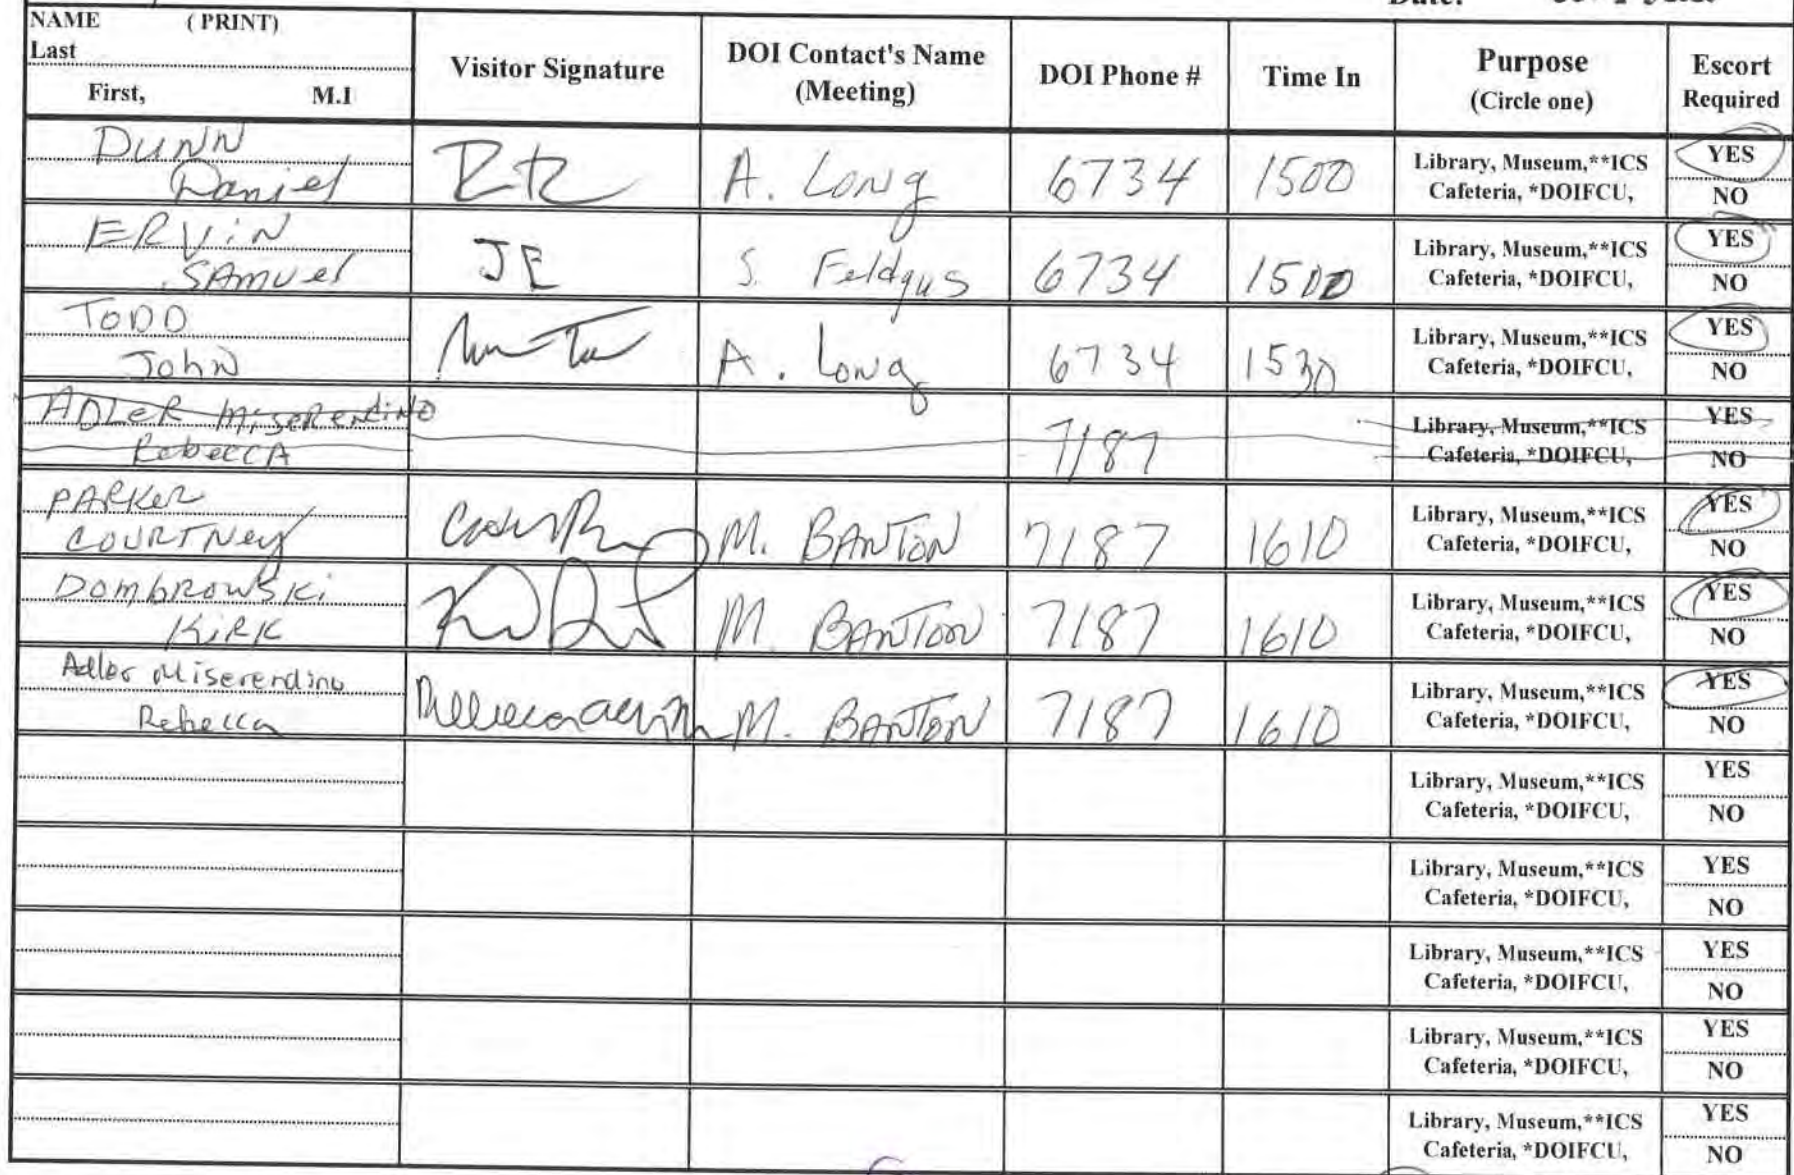 NAME (PRINT)
Last
First, M.I
Visitor Signature
DOI Contact's Name
(Meeting)
DOI Phone #
Time In
Purpose
(Circle one)
Escort
Required
DUNN
Daniel
A. Long
6734
1500
Library, Museum,**ICS
Cafeteria, *DOIFCU,
YES
NO
ERViN
SAmuel
JE
S. Feldgus
6734
1500
Library, Museum,**ICS
Cafeteria, *DOIFCU,
YES
NO
TODD
John
A. Long
6734
1530
Library, Museum,**ICS
Cafeteria, *DOIFCU,
YES
NO
ADLeR MiseRendiNO
RebeccA
7187
Library, Museum,**ICS
Cafeteria, *DOIFCU,
YES
NO
PARKer
COURTNey
M. BANTON
7187
1610
Library, Museum,**ICS
Cafeteria, *DOIFCU,
YES
NO
DombROWSKi
KiRK
M. BANTON
7187
1610
Library, Museum,**ICS
Cafeteria, *DOIFCU,
YES
NO
Adler Miserendino
Rebecca
M. BANTON
7187
1610
Library, Museum,**ICS
Cafeteria, *DOIFCU,
YES
NO
Library, Museum,**ICS
Cafeteria, *DOIFCU,
YES
NO
Library, Museum,**ICS
Cafeteria, *DOIFCU,
YES
NO
Library, Museum,**ICS
Cafeteria, *DOIFCU,
YES
NO
Library, Museum,**ICS
Cafeteria, *DOIFCU,
YES
NO
Library, Museum,**ICS
Cafeteria, *DOIFCU,
YES
NO